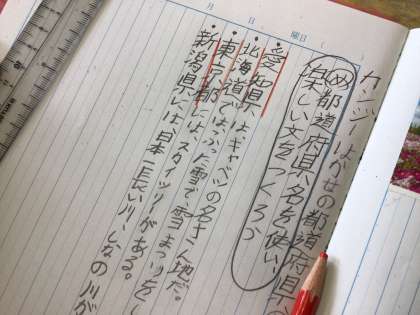 月　日　曜日
カンジーはかせの都道府県
め 都道府県名を使い、
楽しい文をつくろう
・愛知県はキャベツの名さん地だ。
・北海道では、ふった雪で、雪まつりをし
・東京都には、スカイツリーがある。
・新潟県には、日本一長い川、しなの川が